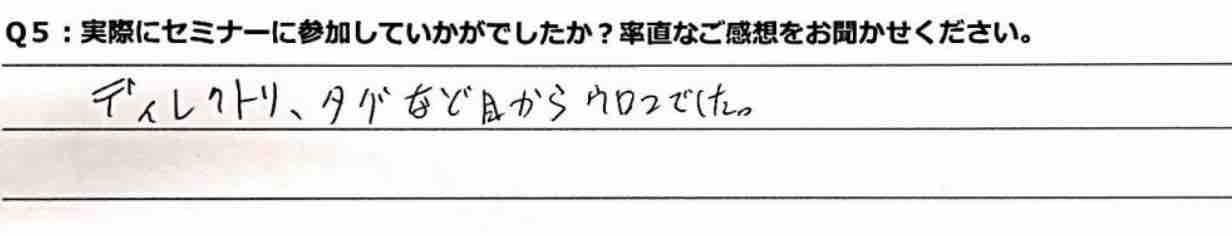 Q5：実際にセミナーに参加していかがでしたか？率直なご感想をお聞かせください。
ディレクトリ、タグなど目からウロコでした。